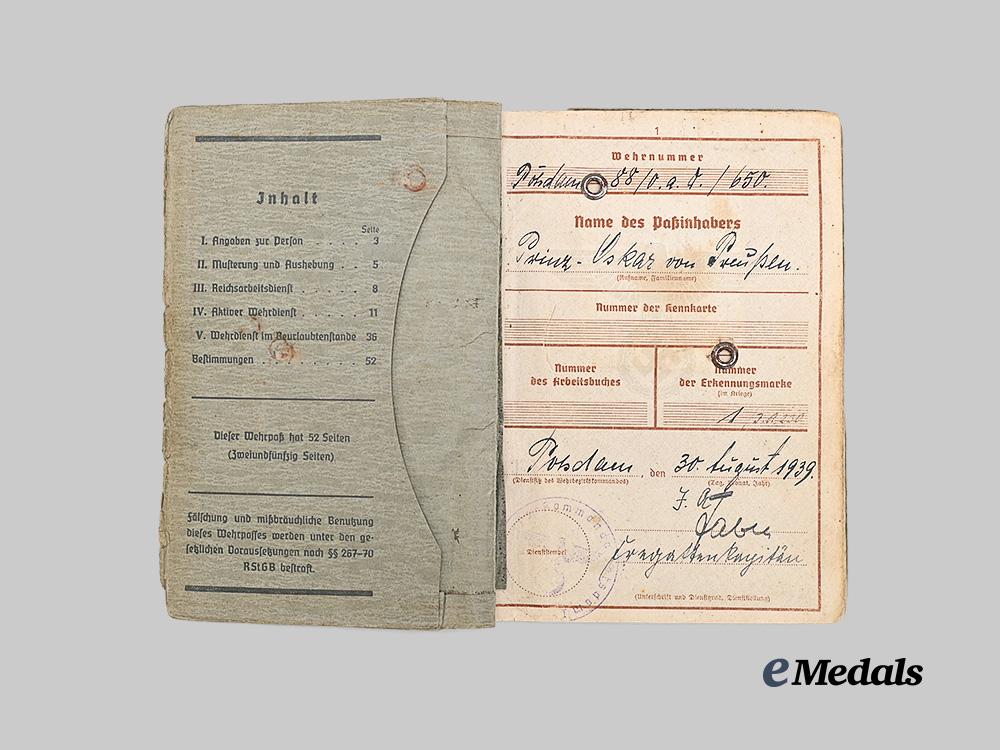 Inhalt
Seite
I. Angaben zur Person . . . . . 3
II. Musterung und Aushebung . . . 5
III. Reichsarbeitsdienst . . . . . . 8
IV. Aktiver Wehrdienst . . . . . 11
V. Wehrdienst im Beurlaubtenstande 36
Bestimmungen . . . . . . . . 52
Dieser Wehrpaß hat 52 Seiten
(Zweiundfünfzig Seiten)
Fälschung und mißbräuchliche Benutzung
dieses Wehrpasses werden unter den ge-
setzlichen Voraussetzungen nach §§ 267-70
RStGB bestraft.
1
Wehrnummer
Potsdam 88/0.a.D./650.
Name des Paßinhabers
Prinz-Oskar von Preußen.
(Rufname, Familienname)
Nummer der Kennkarte
Nummer
des Arbeitsbuches
Nummer
der Erkennungsmarke
(im Kriege)
1
Potsdam, den 30. August 1939.
(Dienstsitz des Wehrbezirkskommandos) (Tag, Monat, Jahr)
Dienststempel
Fregattenkapitän
(Unterschrift und Dienstgrad, Dienststellung)
eMedals